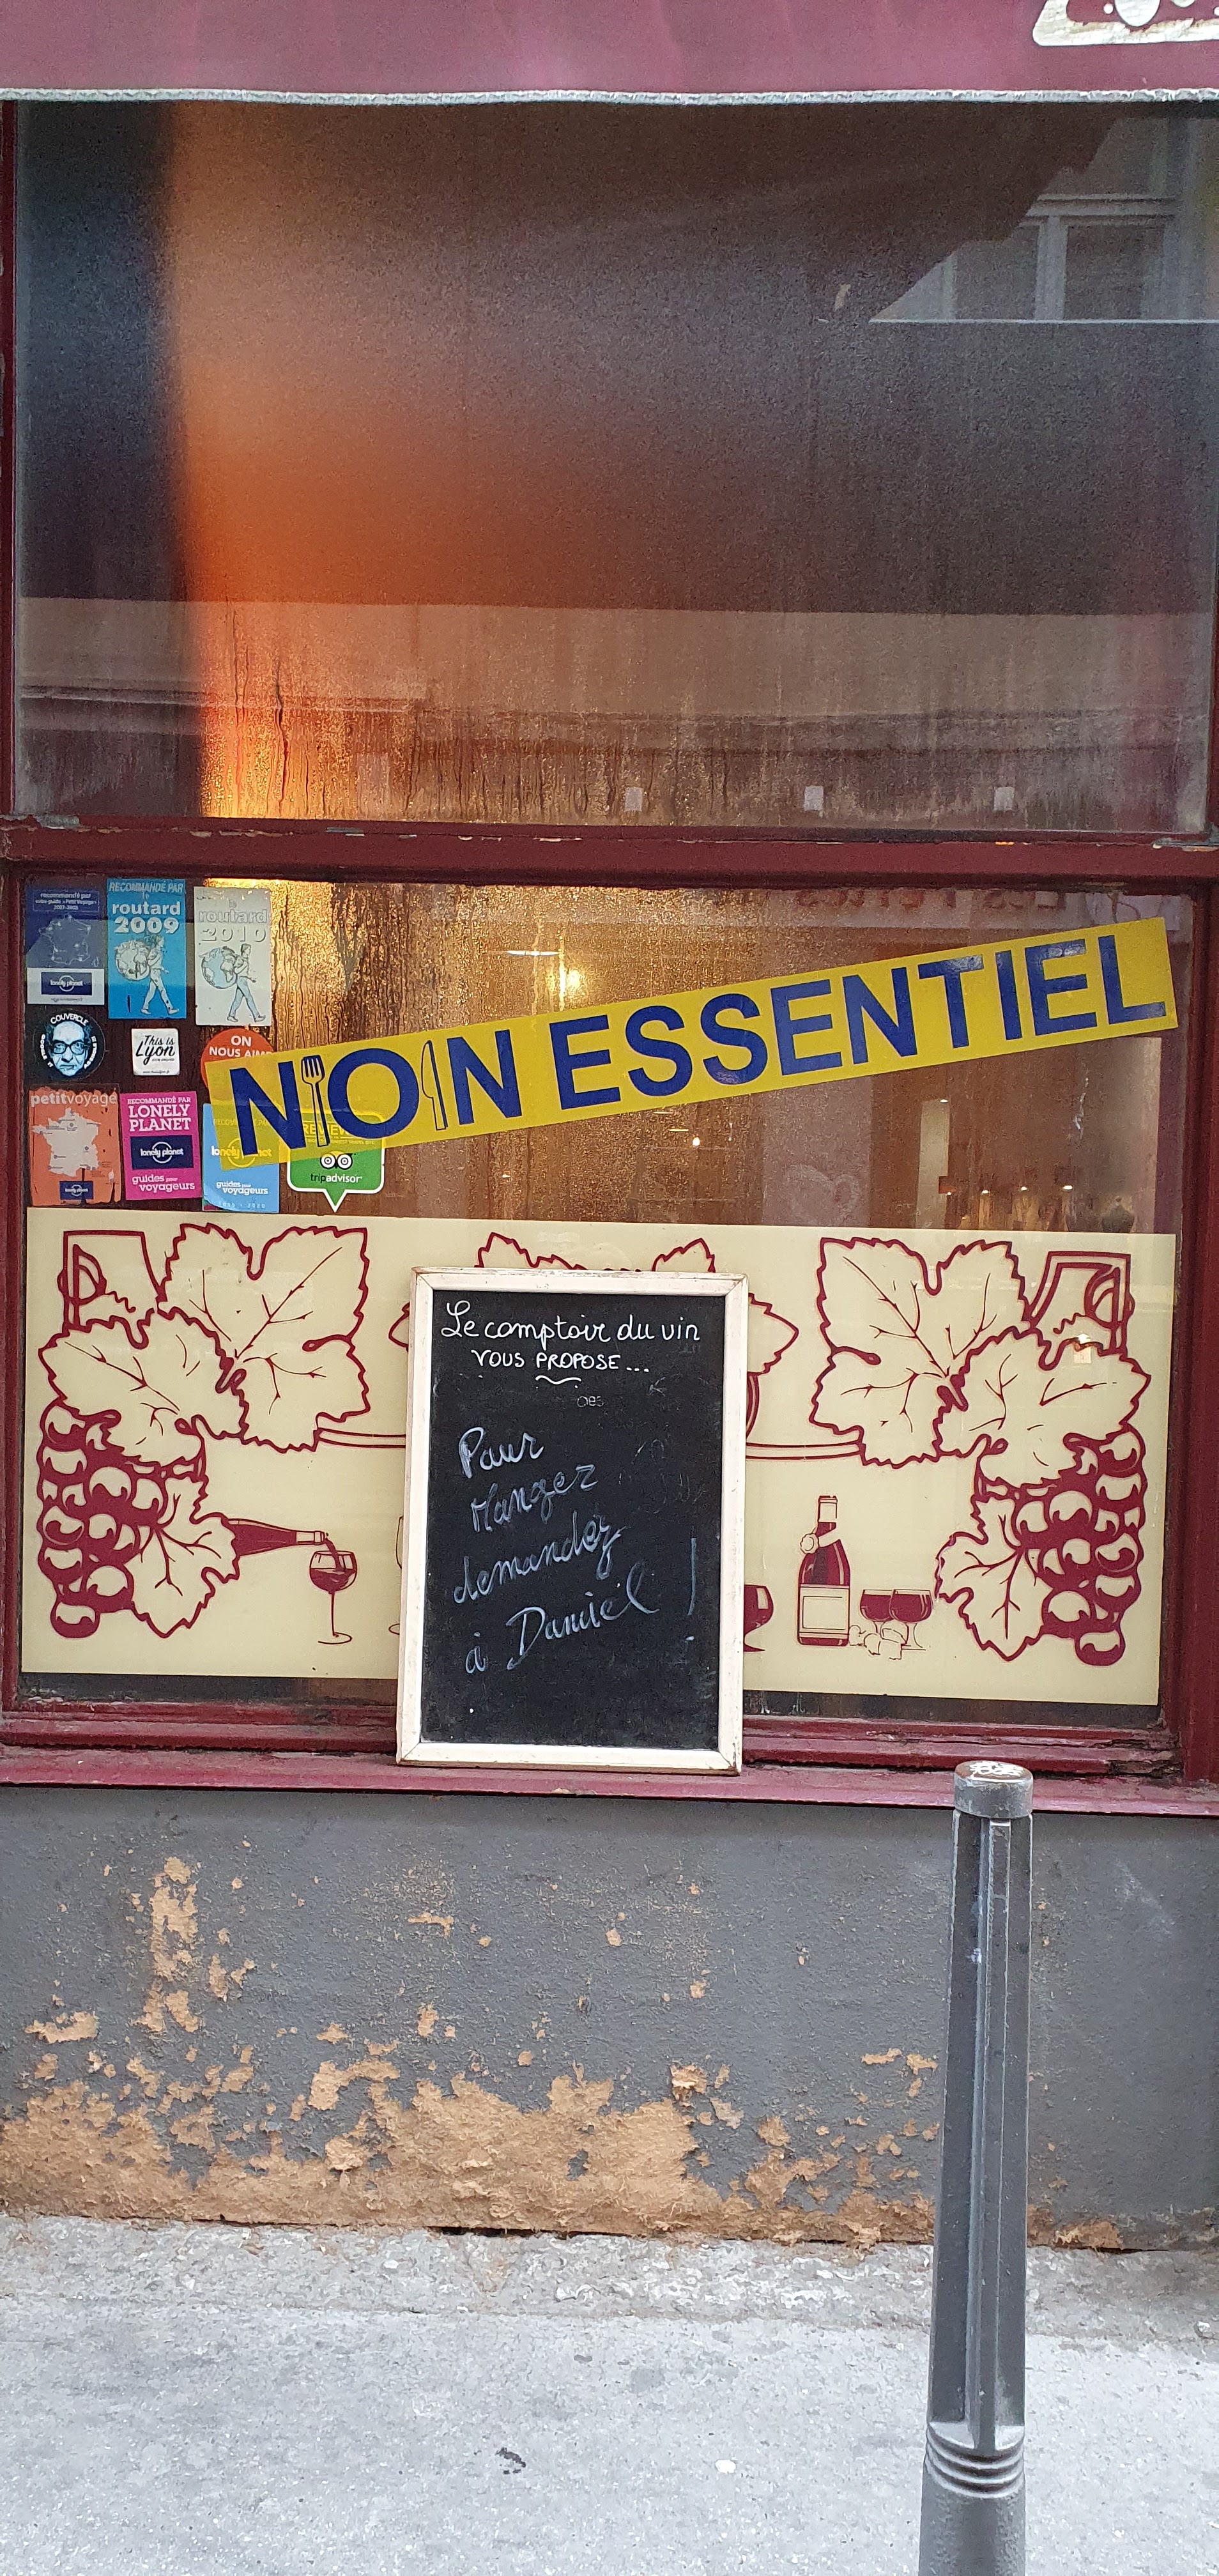 recommandé par
RECOMMANDÉ PAR
le
routard
2009
lonely planet
le
routard
2010
COUVERCLE
This is
Lyon
ON
NOUS AIME
NON ESSENTIEL
petitvoyage
lonely planet
RECOMMANDÉ PAR
LONELY
PLANET
lonely planet
guides pour
voyageurs
lonely planet
guides pour
voyageurs
REVIEW
tripadvisor
LES PERLES
Le comptoir du vin
VOUS PROPOSE...
DES
Pour
Manger
demandez
à Daniel !